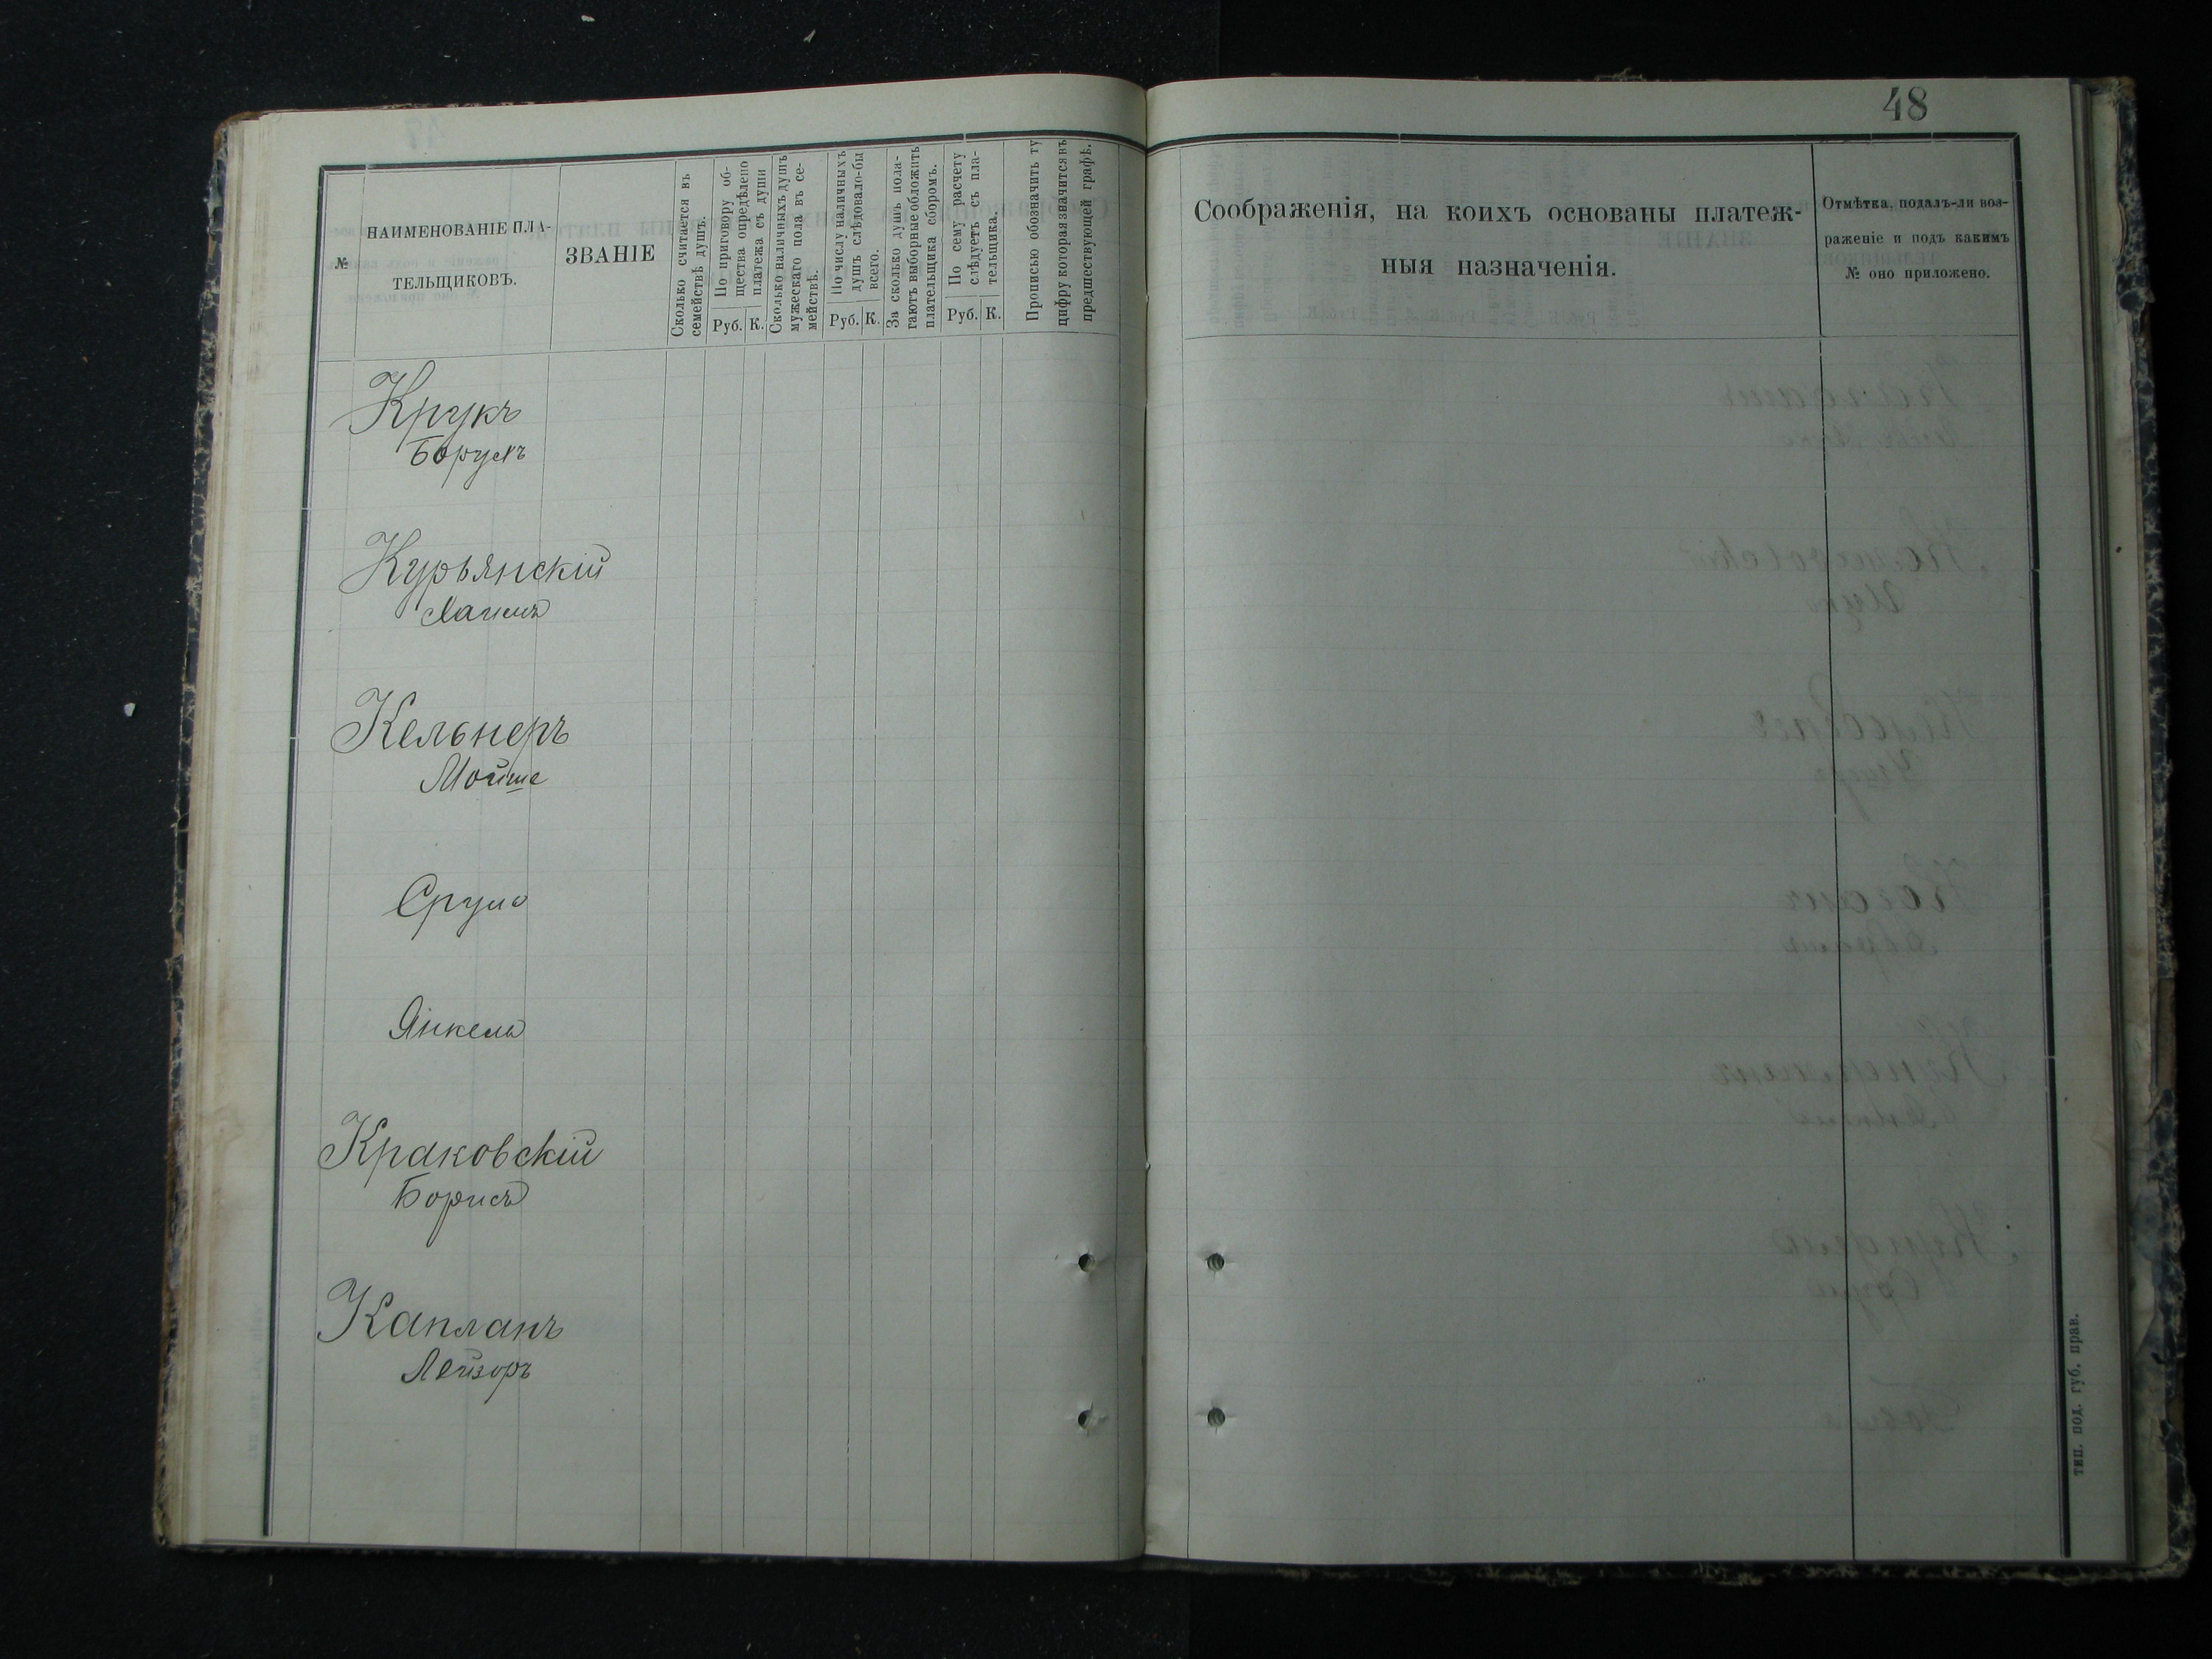 48
№
НАИМЕНОВАНІЕ ПЛА-
ТЕЛЬЩИКОВЪ.
ЗВАНІЕ
Сколько считается въ
семействѣ душъ.
По приговору об-
щества опредѣлено
платежа съ души
Руб. К.
Сколько наличныхъ душъ
мужескаго пола въ се-
мействѣ.
По числу наличныхъ
душъ слѣдовало-бы
всего.
Руб. К.
За сколько душъ пола-
гаютъ выборные обложить
плательщика сборомъ.
По сему расчету
слѣдуетъ съ пла-
тельщика.
Руб. К.
Прописью обозначить ту
цифру которая значится въ
предшествующей графѣ.
Соображенія, на коихъ основаны платеж-
ныя назначенія.
Отмѣтка, подалъ-ли воз-
раженіе и подъ какимъ
№ оно приложено.
Крукъ
Борухъ
Курьянскій
Кельнеръ
Мойше
Сруль
Янкель
Краковскій
Борисъ
Капланъ
Лейзоръ
тип. под. губ. прав.